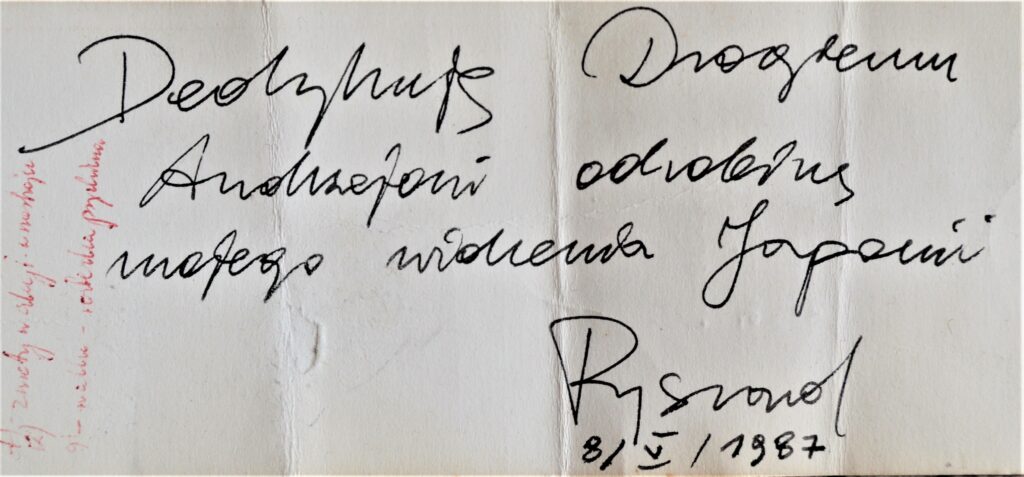 Dedykuję Drogiemu
Andrzejowi odrobinę
mojego widzenia Japonii
Ryszard
8/V/1987